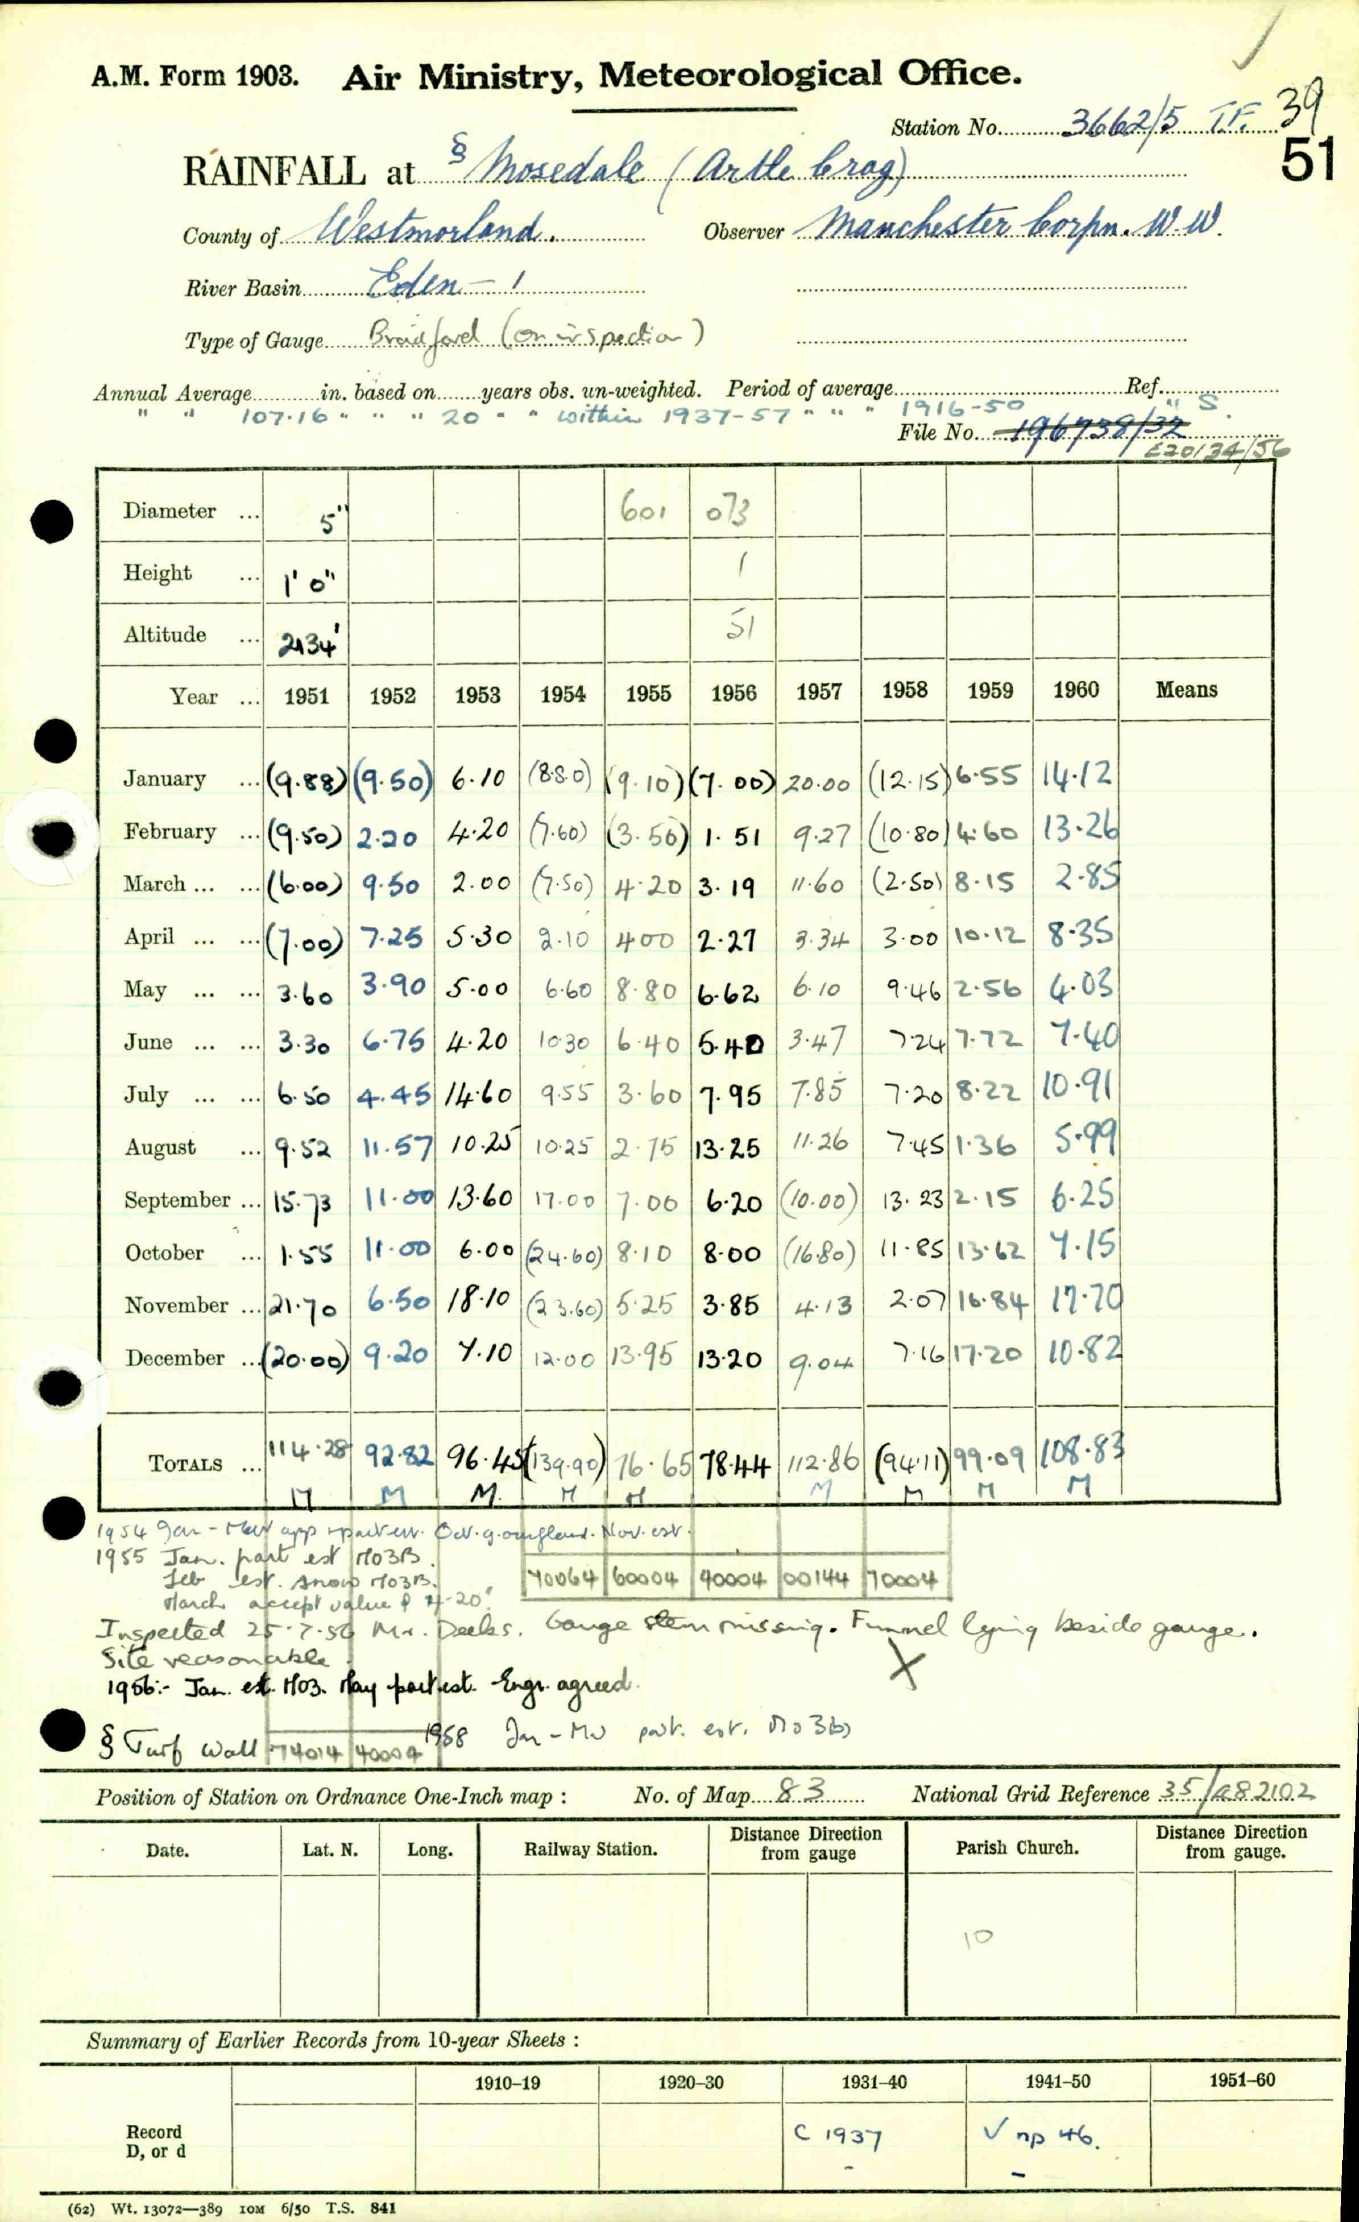 A.M. Form 1903. Air Ministry, Meteorological Office.
Station No. 3662/5 T.F. 39
51
RAINFALL at § Mosedale (Artle Crag)
County of Westmorland. Observer Manchester Corpn. W.W.
River Basin Eden – 1
Type of Gauge Bradford (on inspection)
Annual Average in. based on years obs. un-weighted. Period of average Ref.
" " 107.16 " " " 20 " " within 1937-57 " " " 1916-50 " S.
File No. 196738/32
Diameter ... 5" 601 073
Height ... 1' 0" 1
Altitude ... 2134' 51
Year ... 1951 1952 1953 1954 1955 1956 1957 1958 1959 1960 Means
January ... (9.88) (9.50) 6.10 (8.80) (9.10) (7.00) 20.00 (12.15) 6.55 14.12
February ... (9.50) 2.20 4.20 (7.60) (3.50) 1.51 9.27 (10.80) 4.60 13.26
March ... ... (6.00) 9.50 2.00 (7.50) 4.20 3.19 11.60 (2.50) 8.15 2.85
April ... ... (7.00) 7.25 5.30 2.10 400 2.27 3.34 3.00 10.12 8.35
May ... ... 3.60 3.90 5.00 6.60 8.80 6.62 6.10 9.46 2.56 4.03
June ... ... 3.30 6.75 4.20 10.30 6.40 5.40 3.47 7.24 7.72 7.40
July ... ... 6.50 4.45 14.60 9.55 3.60 7.95 7.85 7.20 8.22 10.91
August ... 9.52 11.57 10.25 10.25 2.75 13.25 11.26 7.45 1.36 5.99
September ... 15.73 11.00 13.60 17.00 7.00 6.20 (10.00) 13.23 2.15 6.25
October ... 1.55 11.00 6.00 (24.60) 8.10 8.00 (16.80) 11.85 13.62 7.15
November ... 21.70 6.50 18.10 (23.60) 5.25 3.85 4.13 2.07 16.84 17.70
December ... (20.00) 9.20 7.10 12.00 13.95 13.20 9.04 7.16 17.20 10.82
TOTALS ... 114.28 92.82 96.45 (139.90) 76.65 78.44 112.86 (94.11) 99.09 108.83
M M M. M M M M M M
1954 Jan – Mar app part est. Oct. Nov. est.
1955 Jan. part est MO3B.
Feb est. snow MO3B.
March accept value of 4.20"
70064 60004 40004 00144 70004
Inspected 25.7.56 Mr. Deeks. Gauge stem missing. Funnel lying beside gauge.
Site reasonable.
1956:- Jan. est. MO3. May part est. Engr. agreed.
§ Turf Wall 74014 40004 1958 Jan – Mar part. est. Mo3b
Position of Station on Ordnance One-Inch map : No. of Map 83 National Grid Reference 35/482102
Date. Lat. N. Long. Railway Station. Distance Direction from gauge Parish Church. Distance Direction from gauge.
10
Summary of Earlier Records from 10-year Sheets :
1910–19 1920–30 1931–40 1941–50 1951–60
Record D, or d C 1937 – V np 46. –
(62) Wt. 13072—389 10M 6/50 T.S. 841